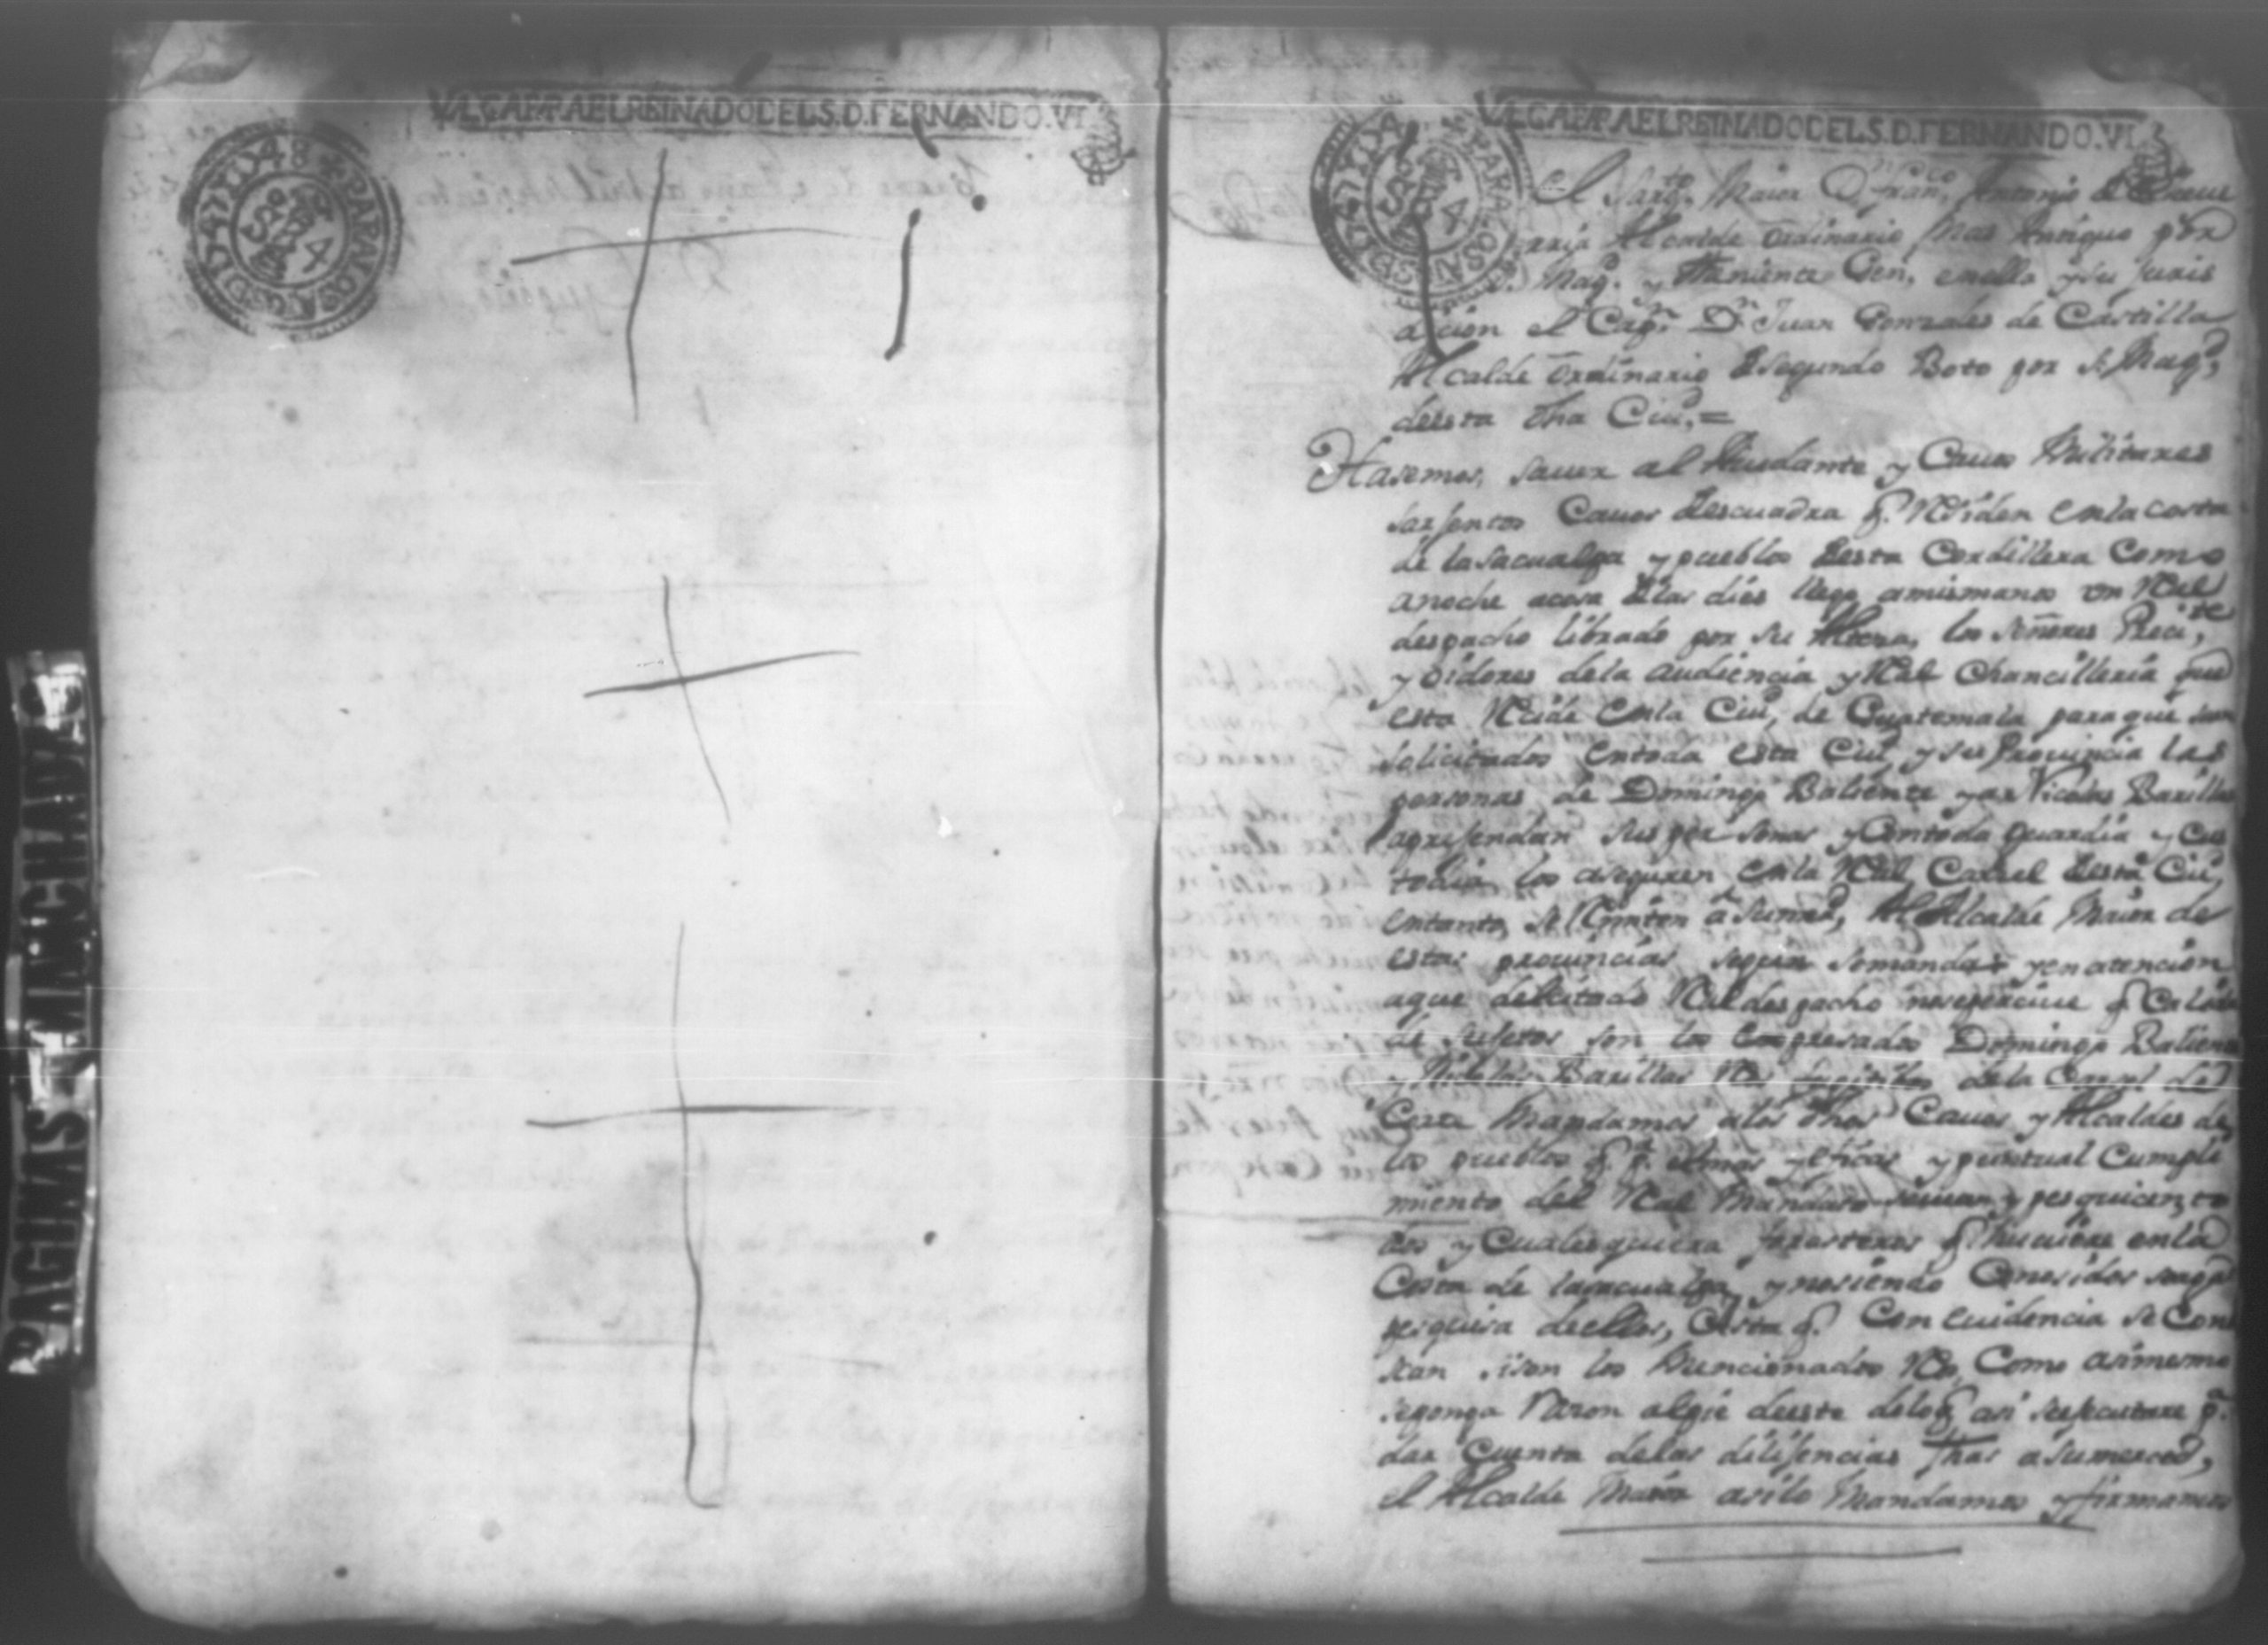 VALGA PARA EL REINADO DEL S. D. FERNANDO. VI.
D 47 Y D 48 PARA LOS A
PAGINAS MANCHADAS
VALGA PARA EL REINADO DEL S. D. FERNANDO. VI.
El Sargto. Maior Dn. Franco. Antonio de
Alcalde ordinario mas Antiguo por
Magd. y Theniente Gen, enella y su juris
cion el Capn. Dn. Juan Gonzales de Castilla
Alcalde ordinario de segundo Boto por su Magd,
deesta dha Ciud, =
Hasemos, sauer al Aiudante y Cauos Militares
sarjentos Cauos de escuadra q. Residen en la costa
de lasacualpa y pueblos desta Cordillera Como
anoche acosa de las dies llego amismanos un Real
despacho librado por su Alteza, los señores Preste,
y oidores dela audiencia y Real Chancilleria que
esta Reside en la Ciud, de Guatemala para que sean
solicitados entoda esta Ciud, y su Prouincia las
personas de Domingo Baliente y a Nicolas Barillas
aprisendan sus personas y Contoda guardia y cus
todia, los aseguren en la Real Carsel desta Ciud,
entanto, se Remiten a sumd, Al Alcalde Maior de
estas prouincias segun semanda y en atencion
aque delcitado Real despacho nosepersiue q. Calida
de sujetos son los Expresados Domingo Baliente
y Nicolas Barillas Rs. fugitibos dela Carsel de
Corte Mandamos alos dhos Cauos y Alcaldes de
los pueblos q. pa. elmas eficas y puntual Cumpli
miento del Real Mandato y pesquicen, to
dos y Cualesquiera forasteros q. huuiere en la
Costa de lasacualpa y nosiendo Conosidos
pesquisa deellos, asta q. Con euidencia se Cons
tan sison los Mencionados Rs, Como asimesmo
seponga Rason alpie deeste delo q. asi seejecutare pa.
dar Cuenta delas dilijencias fhas a sumerced,
el Alcalde Maior asilo Mandamos y firmamos